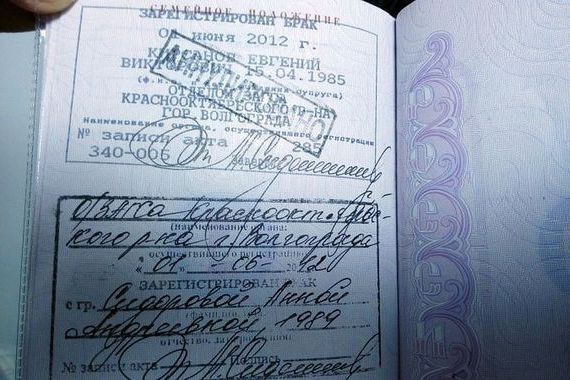 СЕМЕЙНОЕ ПОЛОЖЕНИЕ
ЗАРЕГИСТРИРОВАН БРАК
ИЮНЯ 2012 г.
ЕВГЕНИЙ
15.04.1985
ОТДЕЛОМ
КРАСНООКТЯБРЬСКОГО Р-НА
ГОР. ВОЛГОГРАДА
Наименование органа, осуществившего регистрацию
№ записи акта 285
340-006
О/ЗАГСа Краснооктябрьс-
кого р-на г. Волгограда
(наименование органа,
осуществившего регистрацию)
« 01 » - 06 - 2012
ЗАРЕГИСТРИРОВАН БРАК
с гр. Сидоровой Анной
Андреевной, 1989
отчество, дата рождения)
№ записи акта Подпись